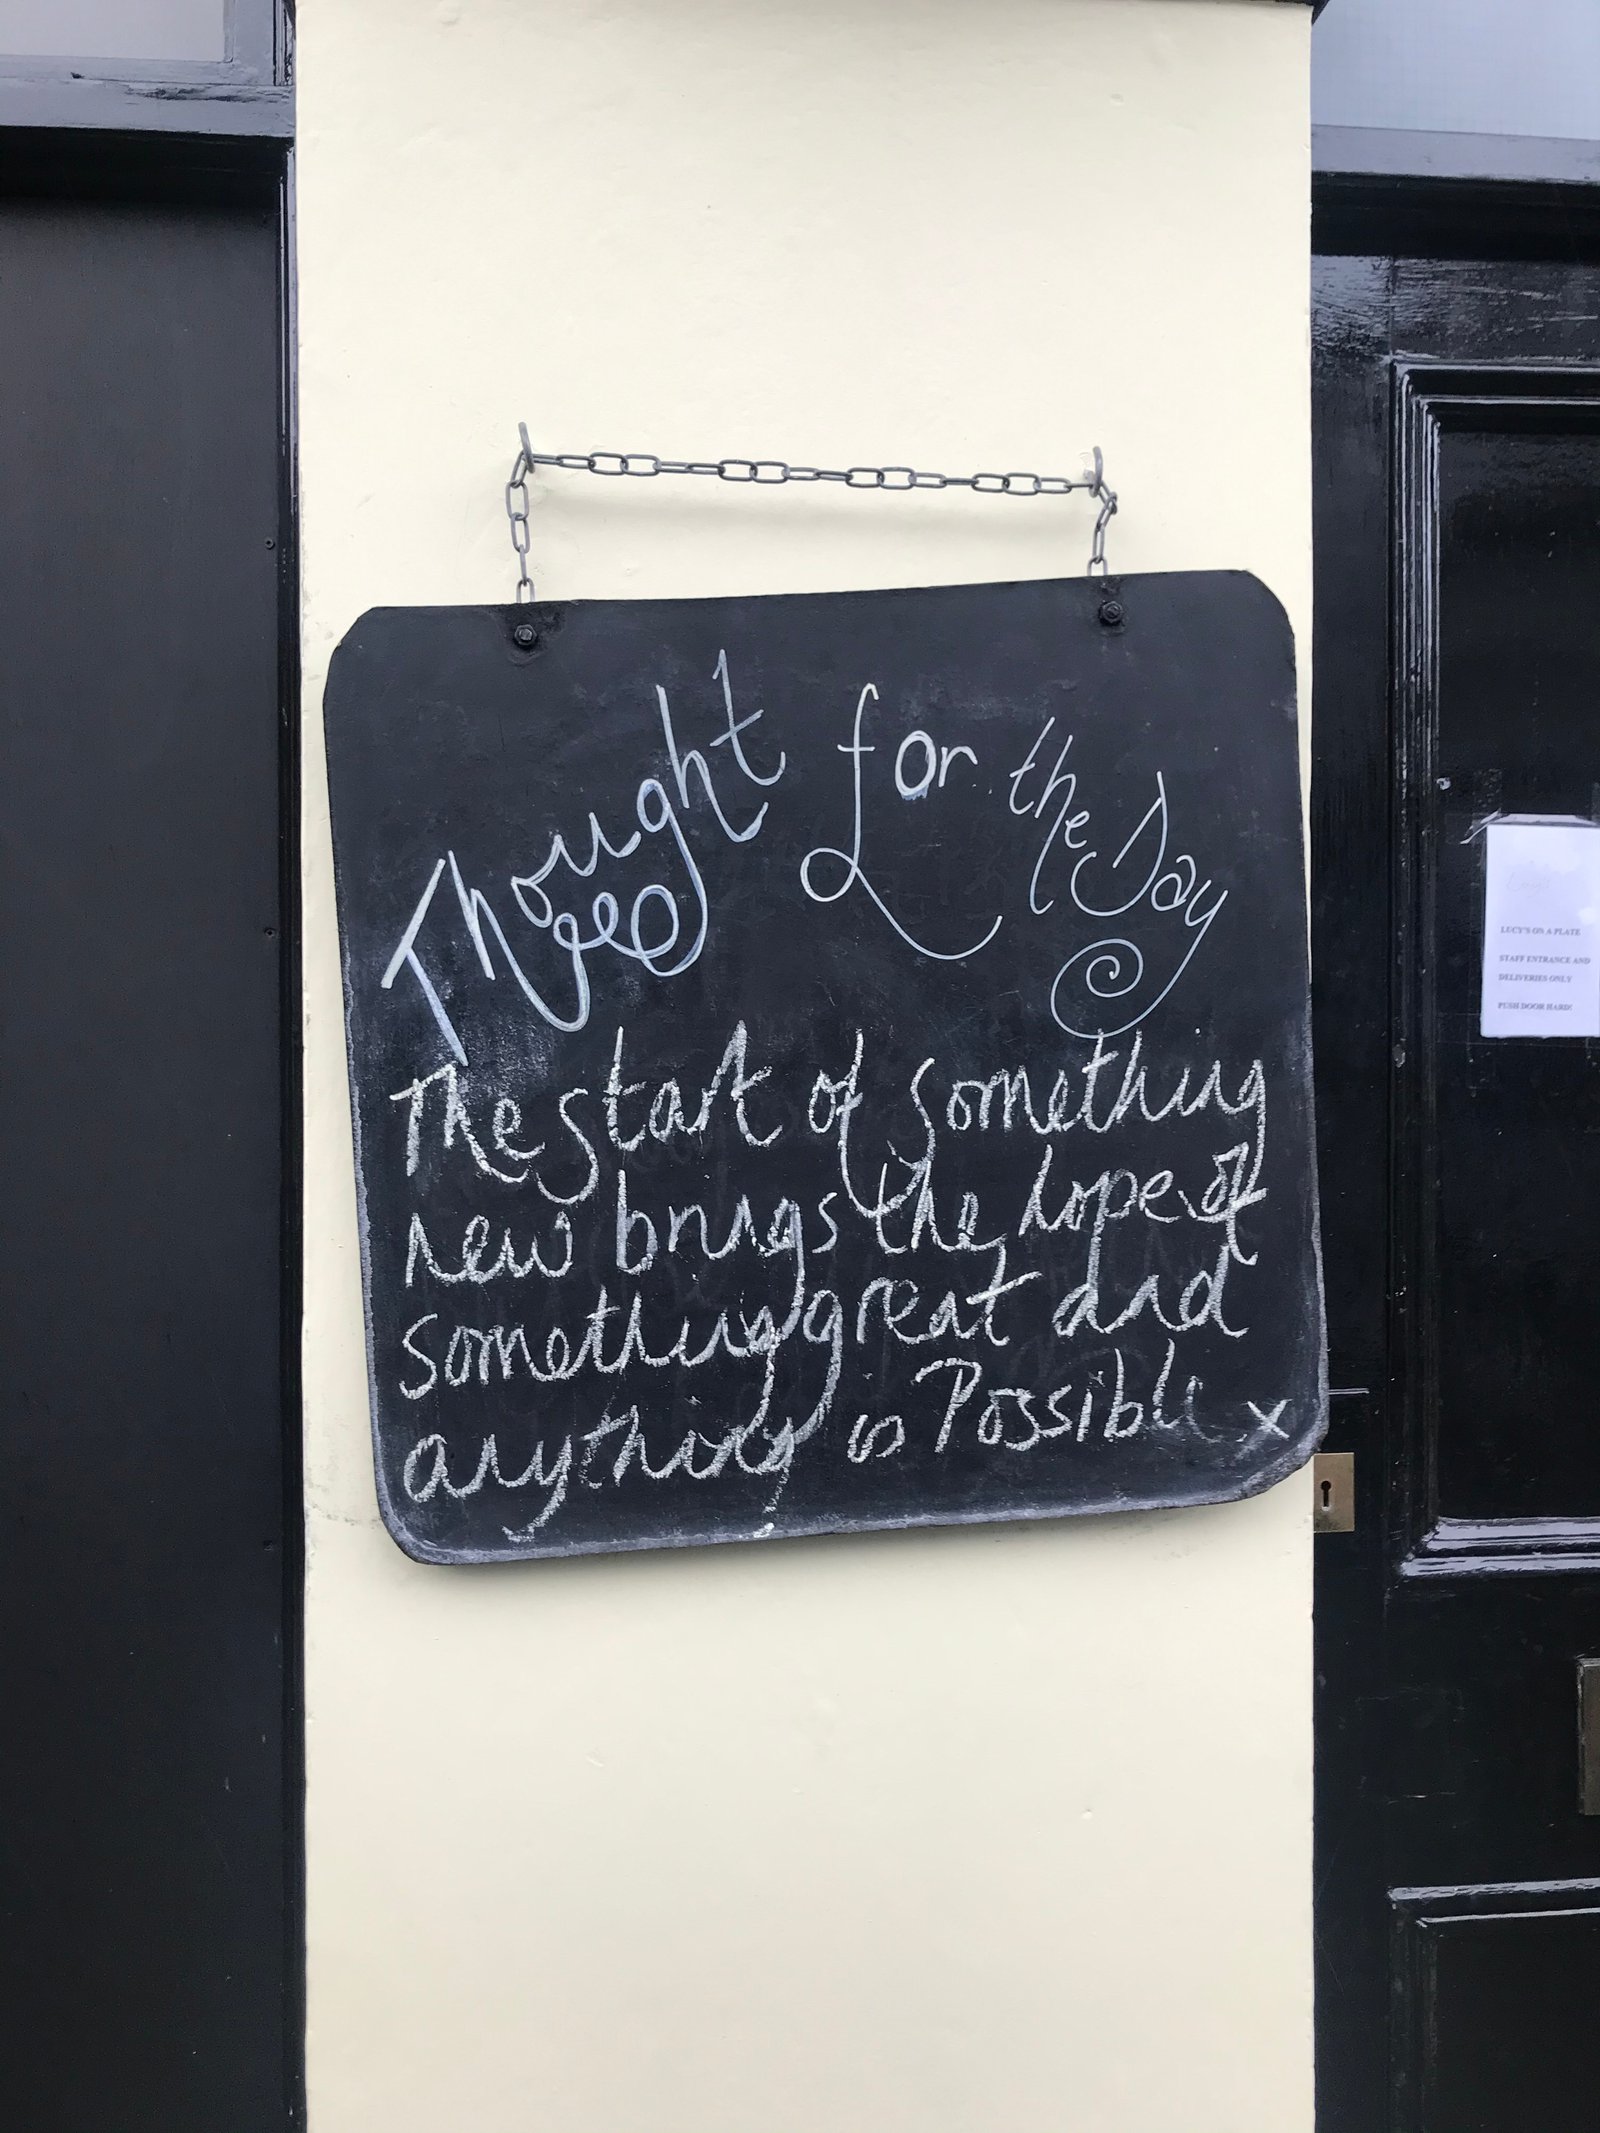 Thought for the Day
The start of something
new brings the hope of
something great and
anything is Possible x
LUCY'S ON A PLATE
STAFF ENTRANCE AND
DELIVERIES ONLY
PUSH DOOR HARD!